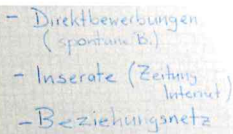 - Direktbewerbungen
(spontane B.)
- Inserate (Zeitung
Internet)
- Beziehungsnetz